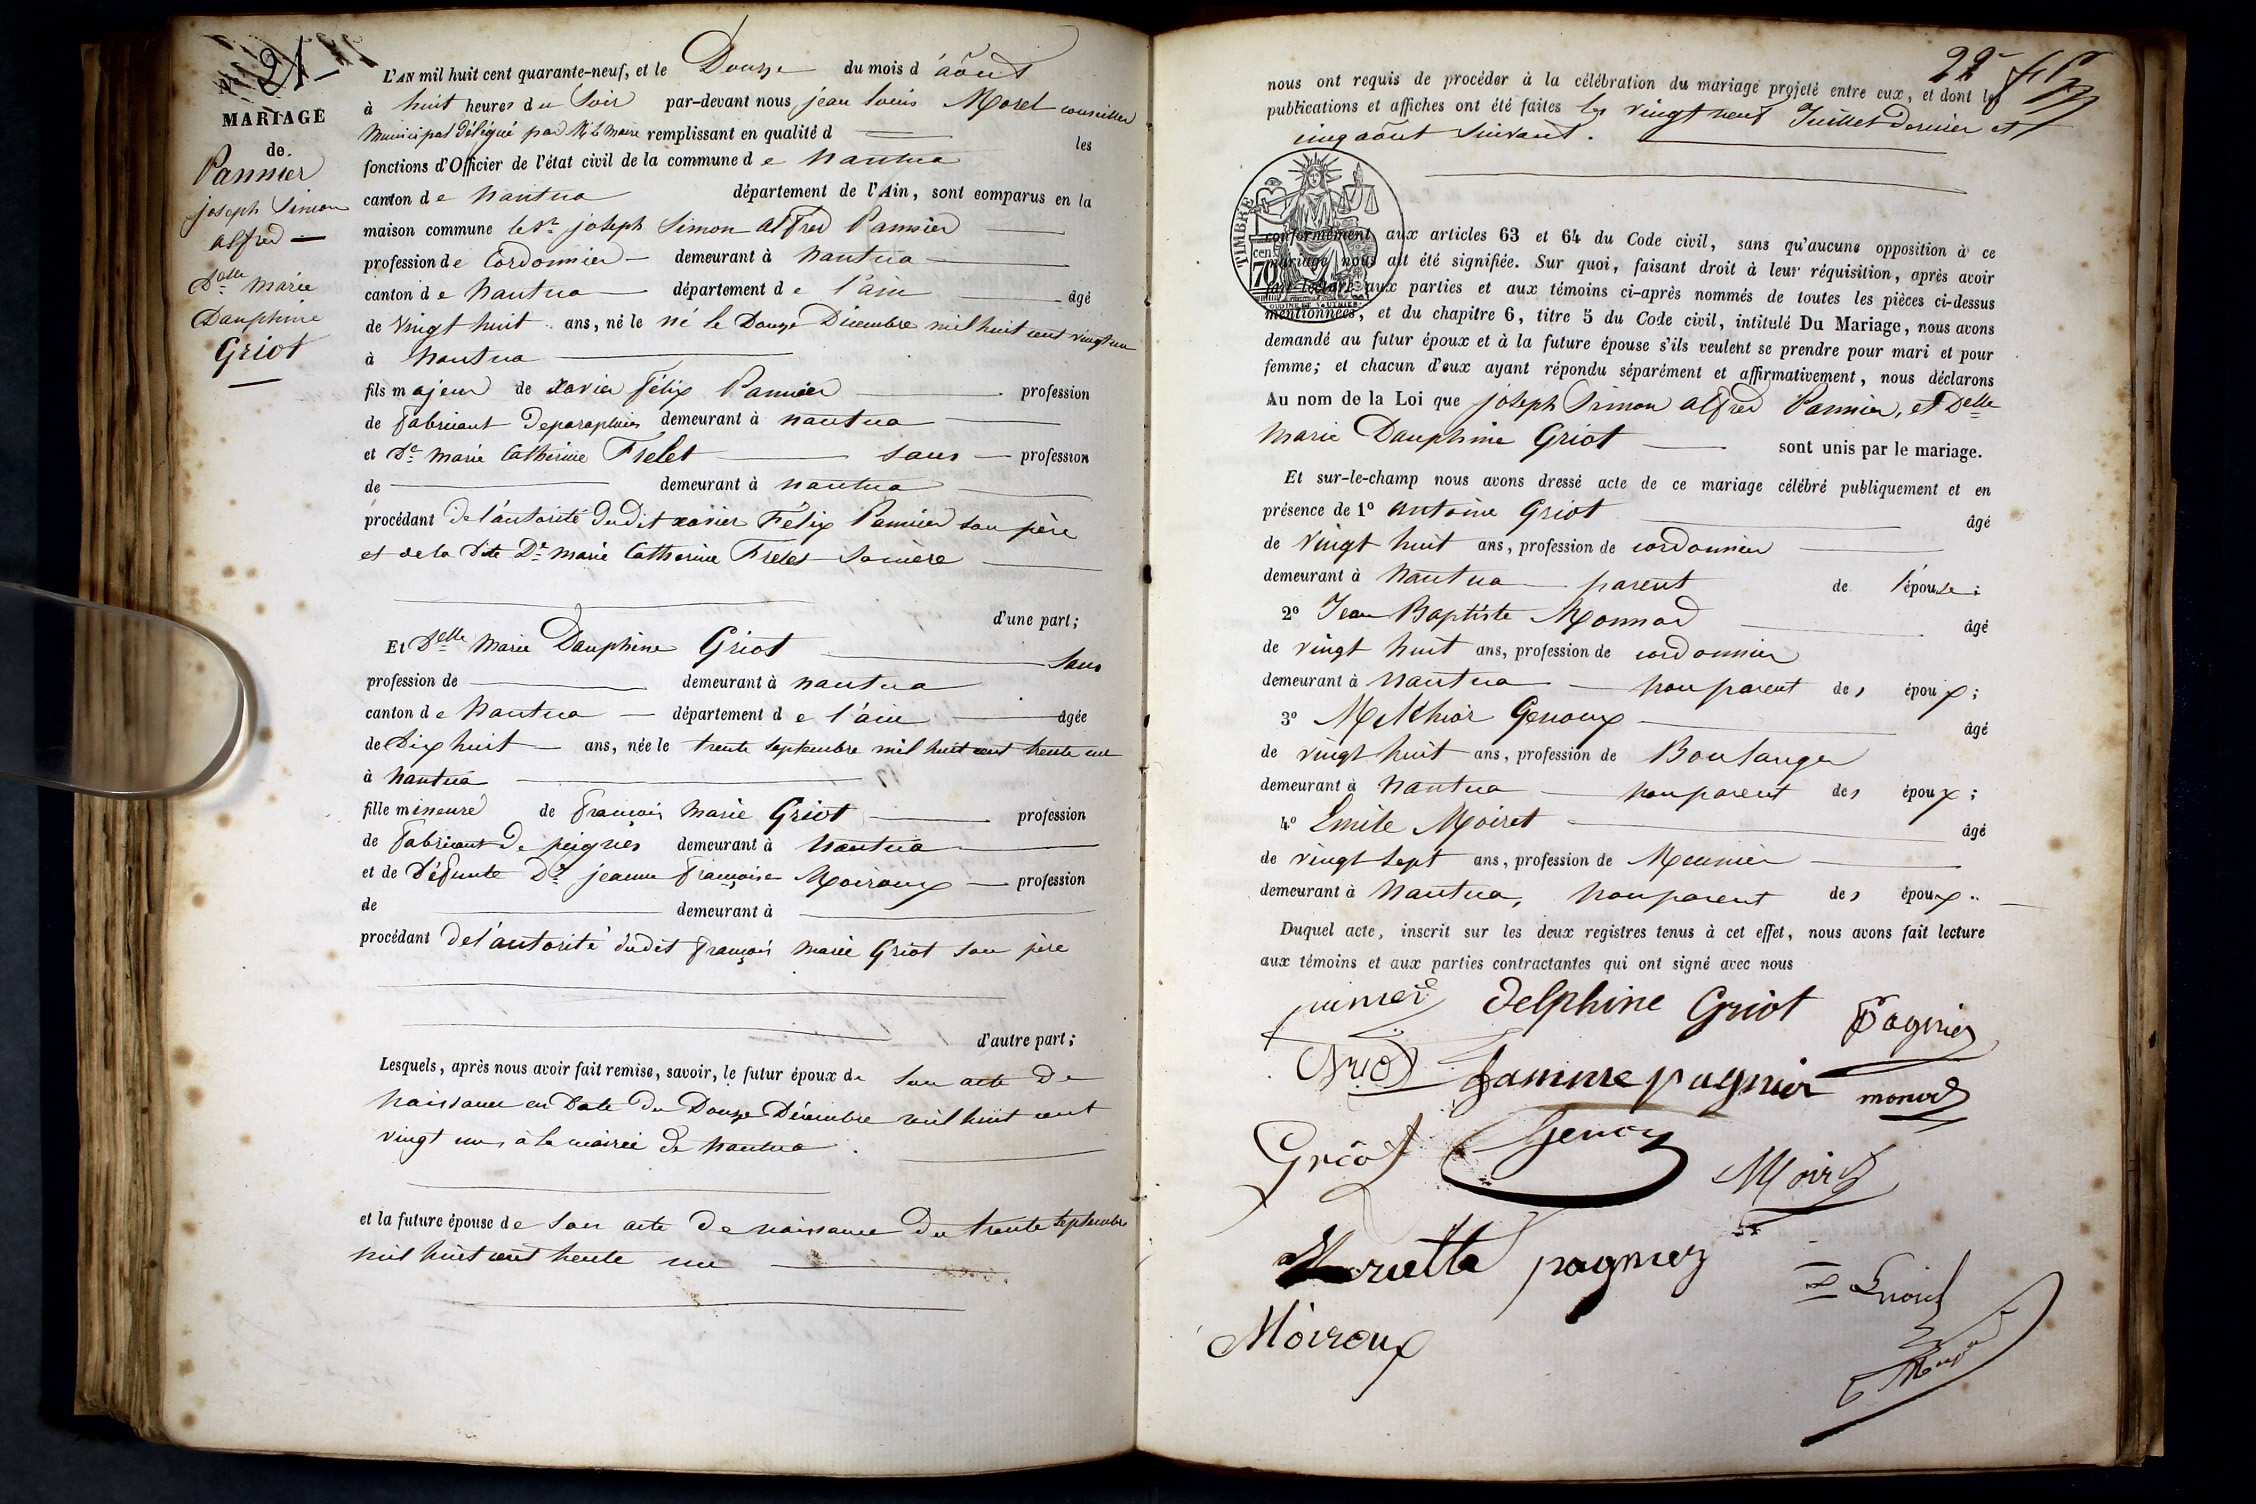 21
MARIAGE
de
Pannier
joseph Simon
alfred —
Delle marie
Dauphine
Griot
L'AN mil huit cent quarante-neuf, et le Douze du mois d'août
à huit heures du Soir par-devant nous jean Louis Morel conseiller
Municipal Délégué par Mr le Maire remplissant en qualité d les
fonctions d'Officier de l'état civil de la commune de nantua
canton de nantua département de l'Ain, sont comparus en la
maison commune le Sr joseph Simon alfred Pannier
profession de Cordonnier demeurant à nantua
canton de nantua département de l'ain âgé
de vingt huit ans, né le né le Douze Décembre mil huit cent vingt un
à nantua
fils majeur de xavier félix Pannier profession
de fabricant de parapluies demeurant à nantua
et De marie Catherine Frelet sans profession
de demeurant à nantua
procédant de l'autorité dudit xavier Félix Pannier son père
et de la dite De marie Catherine Frelet sa mère
d'une part;
Et Delle marie Dauphine Griot sans
profession de demeurant à nantua
canton de nantua département de l'ain âgée
de Dix huit ans, née le trente septembre mil huit cent trente un
à nantua
fille mineure de françois marie Griot profession
de fabricant de peignes demeurant à nantua
et de Défunte De jeanne françoise Moiroux profession
de demeurant à
procédant de l'autorité dudit françois marie Griot son père
d'autre part;
Lesquels, après nous avoir fait remise, savoir, le futur époux de son acte de
naissance en date du Douze Décembre mil huit cent
vingt un, à la mairie de nantua.
et la future épouse de son acte de naissance du trente septembre
mil huit cent trente un
22
nous ont requis de procéder à la célébration du mariage projeté entre eux, et dont les
publications et affiches ont été faites les vingt neuf Juillet dernier et
cinq août Suivant.
TIMBRE
70
cen
conformément aux articles 63 et 64 du Code civil, sans qu'aucune opposition à ce
mariage nous ait été signifiée. Sur quoi, faisant droit à leur réquisition, après avoir
fait lecture aux parties et aux témoins ci-après nommés de toutes les pièces ci-dessus
mentionnées, et du chapitre 6, titre 5 du Code civil, intitulé Du Mariage, nous avons
demandé au futur époux et à la future épouse s'ils veulent se prendre pour mari et pour
femme; et chacun d'eux ayant répondu séparément et affirmativement, nous déclarons
Au nom de la Loi que joseph Simon alfred Pannier, et Delle
marie Dauphine Griot sont unis par le mariage.
Et sur-le-champ nous avons dressé acte de ce mariage célébré publiquement et en
présence de 1° antoine Griot âgé
de vingt huit ans, profession de cordonnier
demeurant à nantua parent de l'épouse;
2° Jean Baptiste Monnod âgé
de vingt huit ans, profession de cordonnier
demeurant à nantua non parent des époux;
3° Melchior Genoux âgé
de vingt huit ans, profession de Boulanger
demeurant à nantua non parent des époux;
4° Emile Moiret âgé
de vingt sept ans, profession de Meunier
demeurant à nantua, non parent des époux
Duquel acte, inscrit sur les deux registres tenus à cet effet, nous avons fait lecture
aux témoins et aux parties contractantes qui ont signé avec nous
Delphine Griot Pagnier
Griot famme pagnier
Griot
pagniez
Moiroux